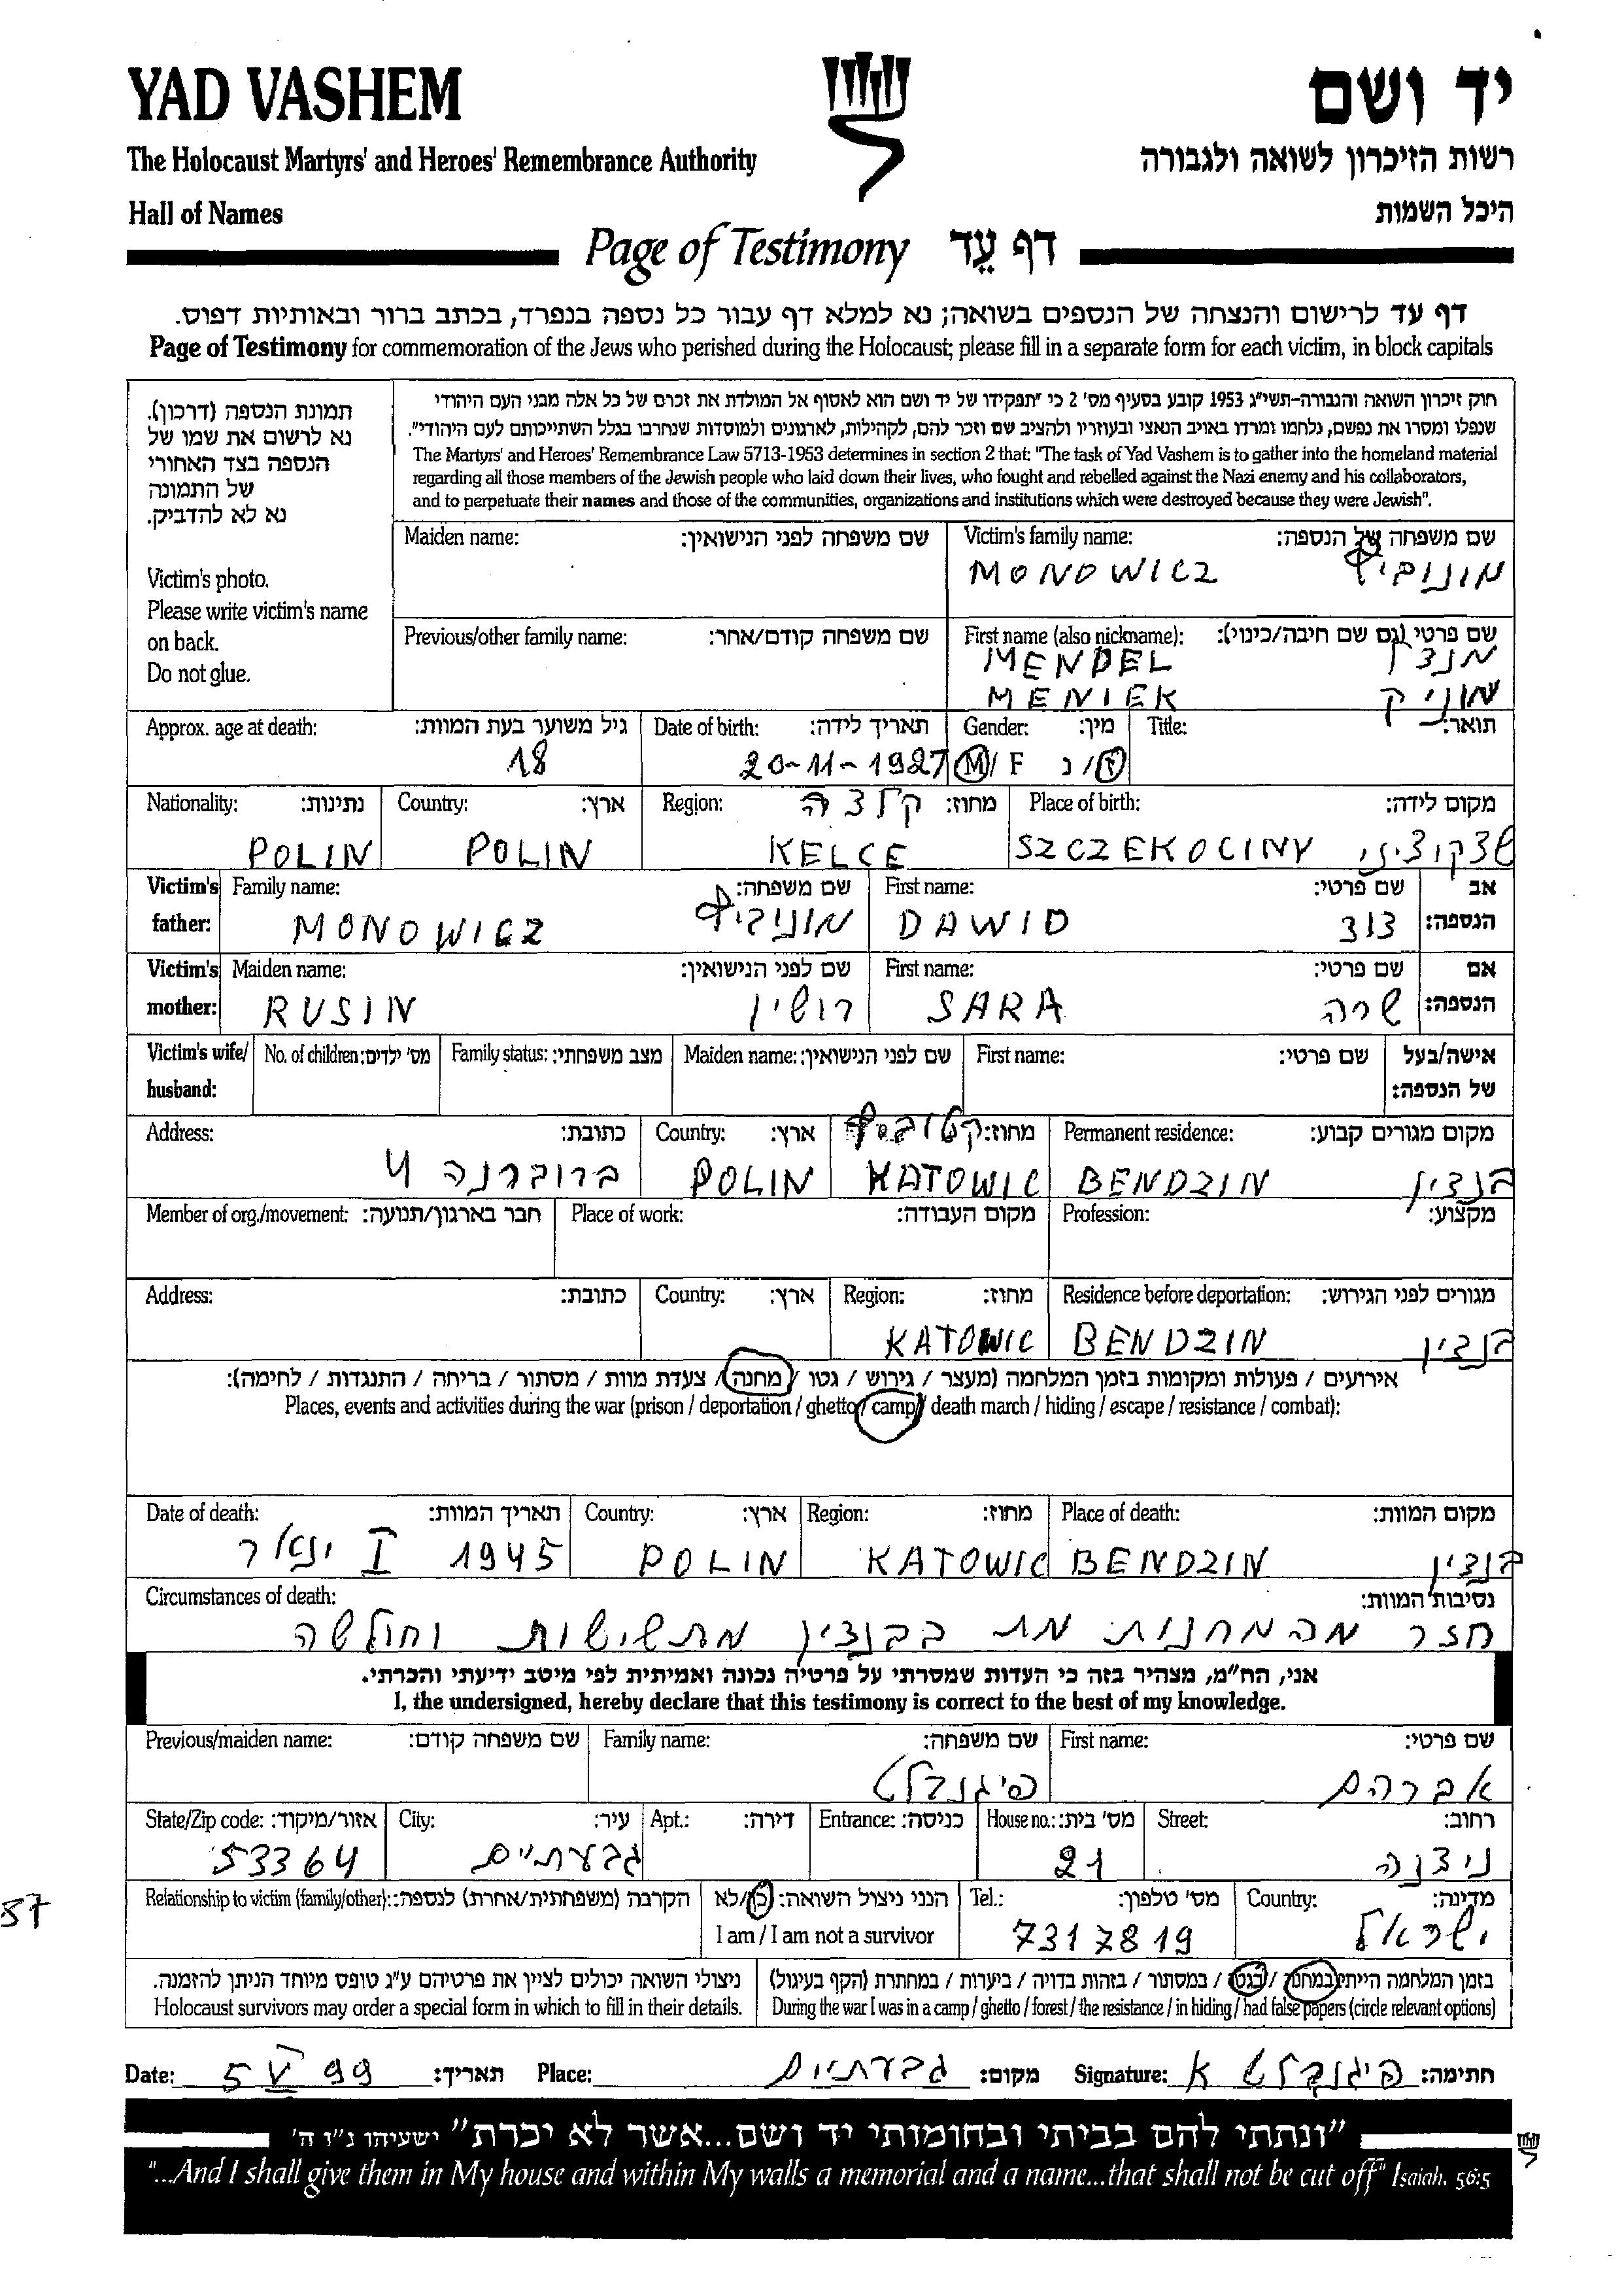 YAD VASHEM
יד ושם
The Holocaust Martyrs' and Heroes' Remembrance Authority
רשות הזיכרון לשואה ולגבורה
Hall of Names
היכל השמות
Page of Testimony דף עֵד
דף עד לרישום והנצחה של הנספים בשואה; נא למלא דף עבור כל נספה בנפרד, בכתב ברור ובאותיות דפוס.
Page of Testimony for commemoration of the Jews who perished during the Holocaust; please fill in a separate form for each victim, in block capitals
תמונת הנספה (דרכון).
נא לרשום את שמו של
הנספה בצד האחורי
של התמונה
נא לא להדביק.
Victim's photo.
Please write victim's name
on back.
Do not glue.
חוק זיכרון השואה והגבורה-תשי"ג 1953 קובע בסעיף מס' 2 כי "תפקידו של יד ושם הוא לאסוף אל המולדת את זכרם של כל אלה מבני העם היהודי
שנפלו ומסרו את נפשם, נלחמו ומרדו באויב הנאצי ובעוזריו ולהציב שם וזכר להם, לקהילות, לארגונים ולמוסדות שנחרבו בגלל השתייכותם לעם היהודי".
The Martyrs' and Heroes' Remembrance Law 5713-1953 determines in section 2 that: "The task of Yad Vashem is to gather into the homeland material
regarding all those members of the Jewish people who laid down their lives, who fought and rebelled against the Nazi enemy and his collaborators,
and to perpetuate their names and those of the communities, organizations and institutions which were destroyed because they were Jewish".
Maiden name: שם משפחה לפני הנישואין: Victim's family name: שם משפחה של הנספה:
MONOWICZ מונוביץ
Previous/other family name: שם משפחה קודם/אחר: First name (also nickname): שם פרטי (גם שם חיבה/כינוי):
MENDEL מנדל
MENIEK מוניק
Approx. age at death: גיל משוער בעת המוות: Date of birth: תאריך לידה: Gender: מין: Title: תואר:
18 20-11-1927 M/ F ז/ נ
Nationality: נתינות: Country: ארץ: Region: מחוז: קלצה Place of birth: מקום לידה:
POLIN POLIN KELCE SZCZEKOCINY שצקוציני
Victim's Family name: שם משפחה: First name: שם פרטי: אב
father: MONOWICZ מונוביץ DAWID דוד הנספה:
Victim's Maiden name: שם לפני הנישואין: First name: שם פרטי: אם
mother: RUSIN רושין SARA שרה הנספה:
Victim's wife/ No. of children: מס' ילדים: Family status: מצב משפחתי: Maiden name: שם לפני הנישואין: First name: שם פרטי: אישה/בעל
husband: של הנספה:
Address: כתובת: Country: ארץ: מחוז: קטוביץ Permanent residence: מקום מגורים קבוע:
ברוברנה 4 POLIN KATOWIC BENDZIN בנדזין
Member of org./movement: חבר בארגון/תנועה: Place of work: מקום העבודה: Profession: מקצוע:
Address: כתובת: Country: ארץ: Region: מחוז: Residence before deportation: מגורים לפני הגירוש:
KATOWIC BENDZIN בנדזין
אירועים / פעולות ומקומות בזמן המלחמה (מעצר / גירוש / גטו / מחנה / צעדת מוות / מסתור / בריחה / התנגדות / לחימה):
Places, events and activities during the war (prison / deportation / ghetto / camp / death march / hiding / escape / resistance / combat):
Date of death: תאריך המוות: Country: ארץ: Region: מחוז: Place of death: מקום המוות:
ינואר I 1945 POLIN KATOWIC BENDZIN בנדזין
Circumstances of death: נסיבות המוות:
חזר מהמחנות מת בבנדזין מתשישות וחולשה
אני, הח"מ, מצהיר בזה כי העדות שמסרתי על פרטיה נכונה ואמיתית לפי מיטב ידיעתי והכרתי.
I, the undersigned, hereby declare that this testimony is correct to the best of my knowledge.
Previous/maiden name: שם משפחה קודם: Family name: שם משפחה: First name: שם פרטי:
פיגנבלט אברהם
State/Zip code: אזור/מיקוד: City: עיר: Apt.: דירה: Entrance: כניסה: House no.: מס' בית: Street: רחוב:
53364 גבעתיים 21 ניצנה
Relationship to victim (family/other): הקרבה (משפחתית/אחרת) לנספה: הנני ניצול השואה: כן/לא Tel.: מס' טלפון: Country: מדינה:
57
I am / I am not a survivor 7317819 ישראל
ניצולי השואה יכולים לציין את פרטיהם ע"ג טופס מיוחד הניתן להזמנה. בזמן המלחמה הייתי במחנה / בגטו / במסתור / בזהות בדויה / ביערות / במחתרת (הקף בעיגול)
Holocaust survivors may order a special form in which to fill in their details. During the war I was in a camp / ghetto / forest / the resistance / in hiding / had false papers (circle relevant options)
Date: 5 V 99 תאריך: Place: גבעתיים מקום: Signature: פיגנבלט א חתימה:
"ונתתי להם בביתי ובחומותי יד ושם...אשר לא יכרת" ישעיהו נ"ו ה'
"...And I shall give them in My house and within My walls a memorial and a name...that shall not be cut off" Isaiah. 56:5